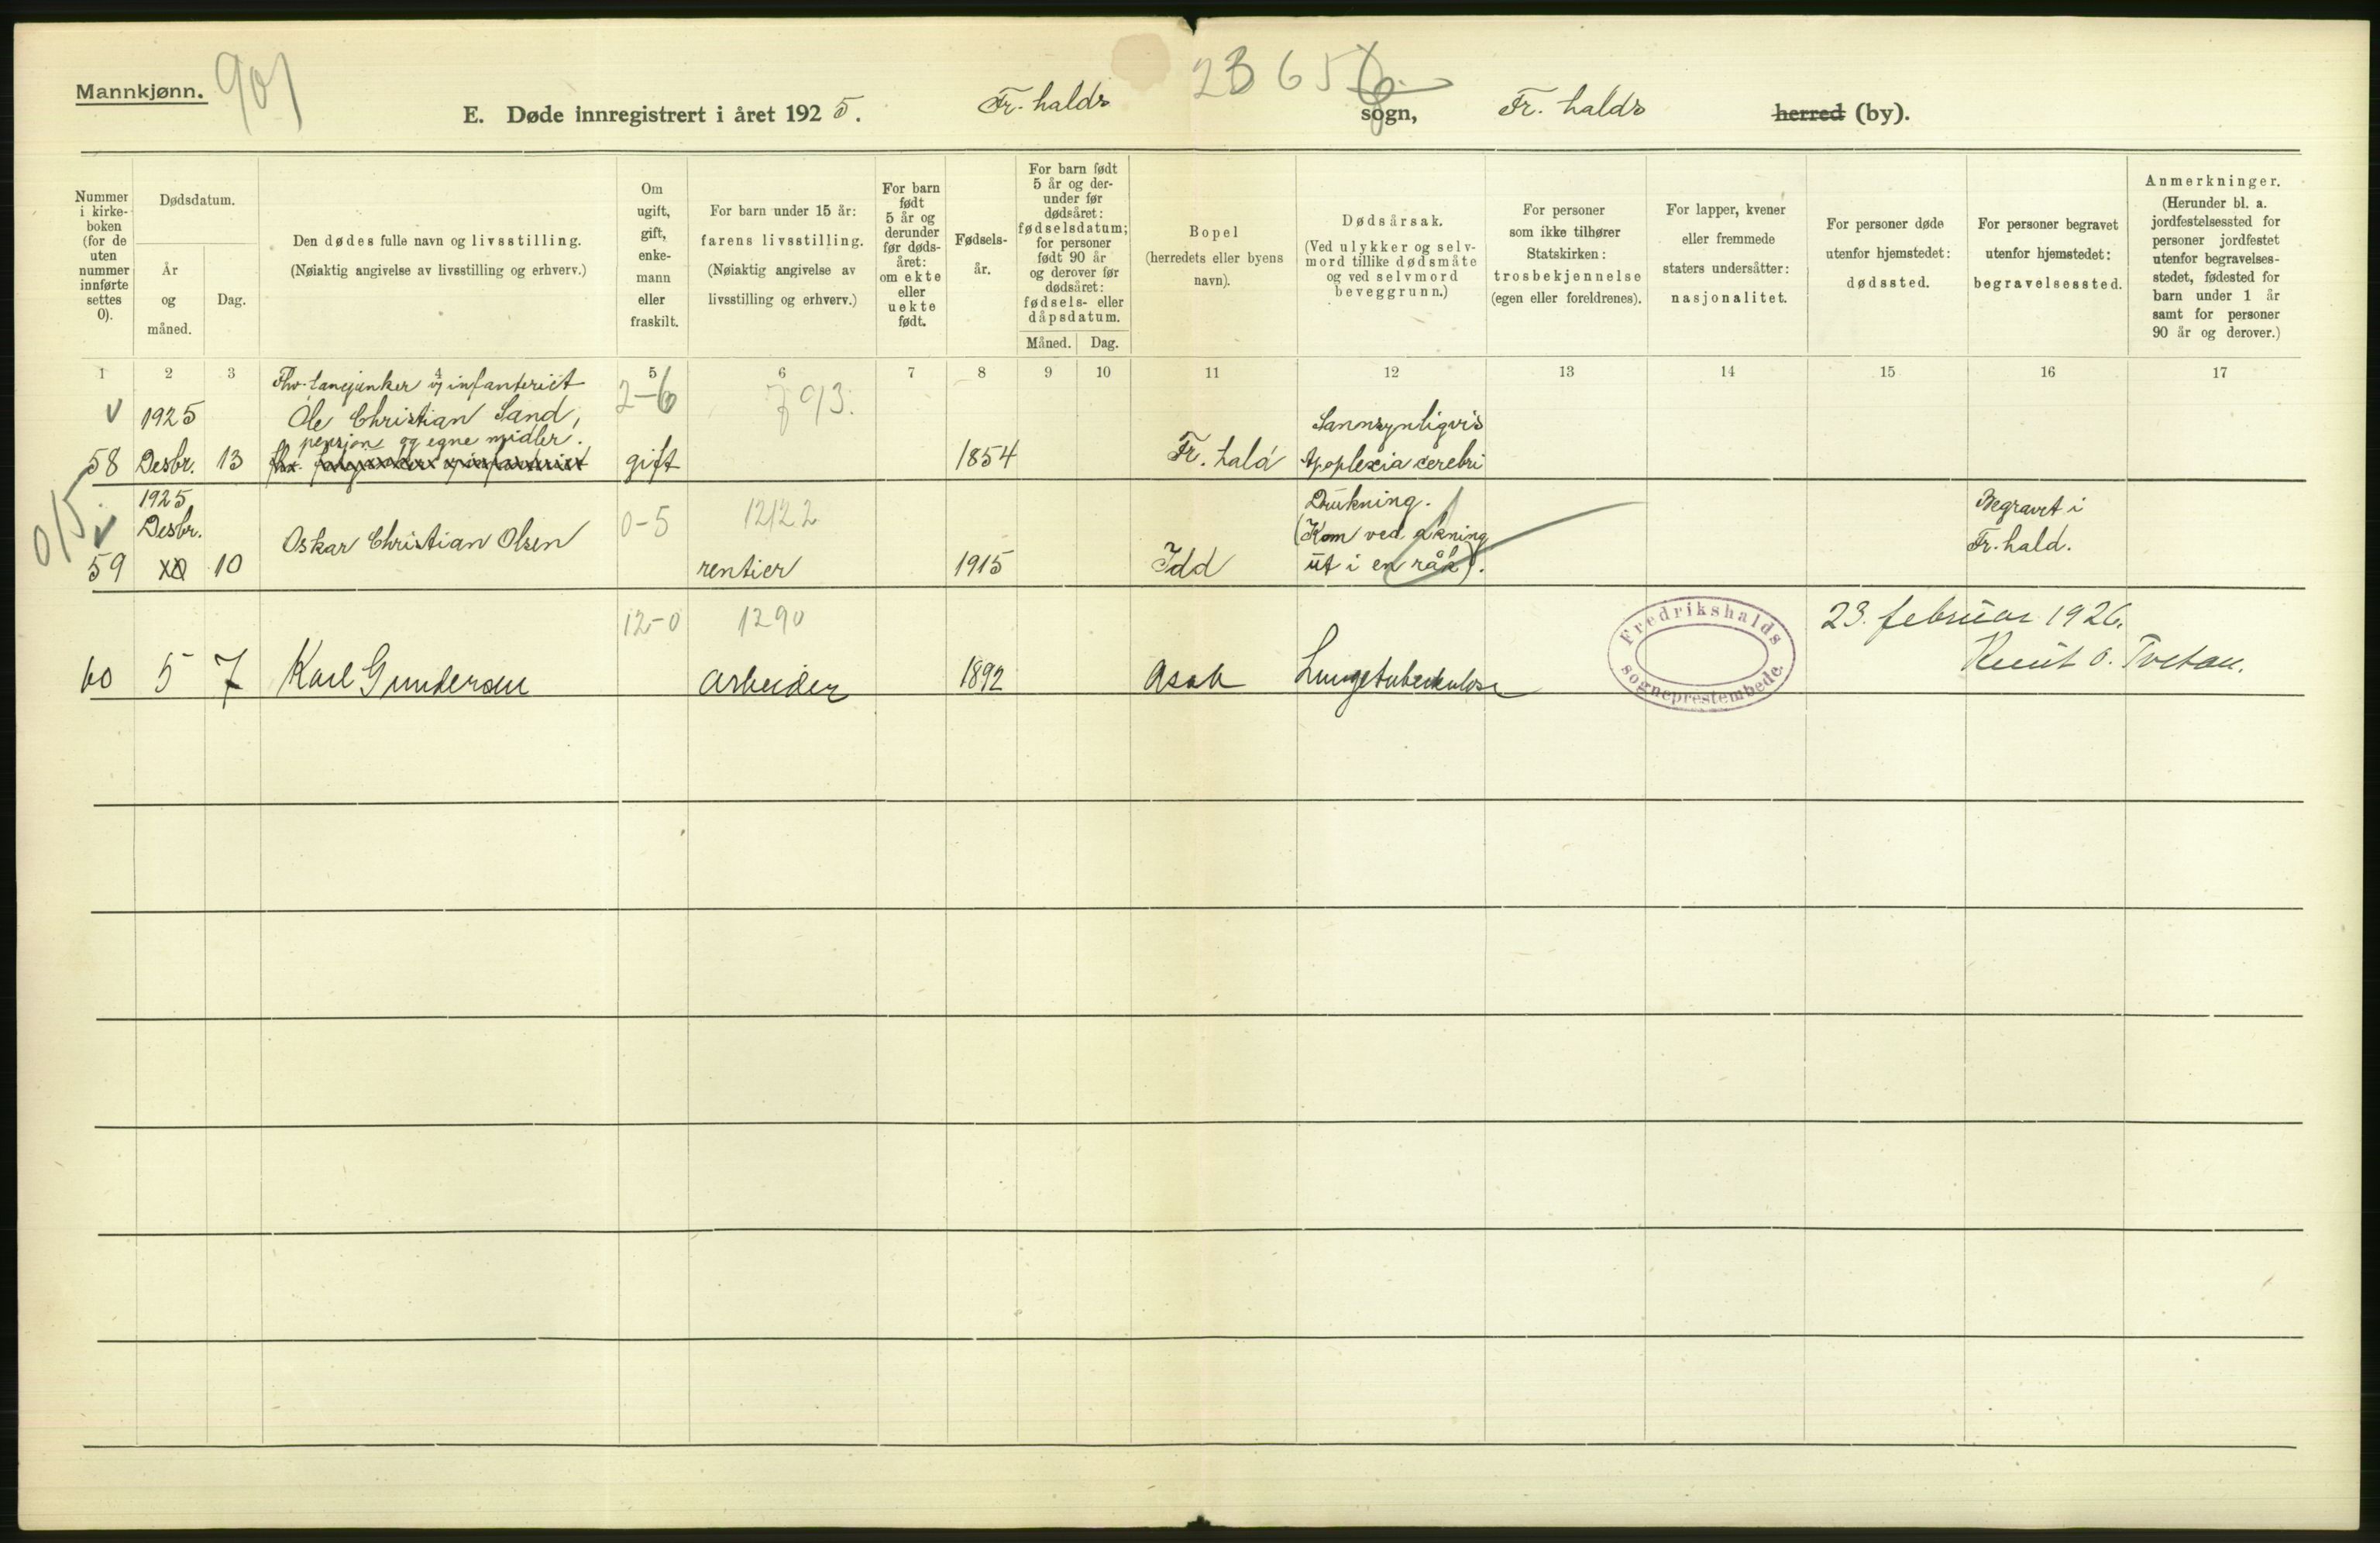 Mannkjønn.
901
E. Døde innregistrert i året 1925.
Fr. halds
sogn,
Fr. halds
herred (by).
Nummer i kirke-boken (for de uten nummer innførte settes 0).
Dødsdatum.
År og måned.
Dag.
Den dødes fulle navn og livsstilling.
(Nøiaktig angivelse av livsstilling og erhverv.)
Om ugift, gift, enkemann eller fraskilt.
For barn under 15 år:
farens livsstilling.
(Nøiaktig angivelse av livsstilling og erhverv.)
For barn født 5 år og derunder før dødsåret: om ekte eller uekte født.
Fødselsår.
For barn født 5 år og derunder før dødsåret: fødselsdatum; for personer født 90 år og derover før dødsåret: fødsels- eller dåpsdatum.
Måned.
Dag.
Bopel
(herredets eller byens navn).
Dødsårsak.
(Ved ulykker og selvmord tillike dødsmåte og ved selvmord beveggrunn.)
For personer som ikke tilhører Statskirken: trosbekjennelse (egen eller foreldrenes).
For lapper, kvener eller fremmede staters undersåtter: nasjonalitet.
For personer døde utenfor hjemstedet: dødssted.
For personer begravet utenfor hjemstedet: begravelsessted.
Anmerkninger.
(Herunder bl. a. jordfestelsessted for personer jordfestet utenfor begravelsesstedet, fødested for barn under 1 år samt for personer 90 år og derover.)
1 2 3 4 5 6 7 8 9 10 11 12 13 14 15 16 17
infanteriet
2-6
793.
1925
Ole Christian Sand,
Sannsynligvis
pensjon og egne midler.
58 Desbr. 13 gift 1854 Fr. hald Apoplexia cerebri
1925
Desbr.
Drukning.
Begravet i
0-5
1212 2
Oskar Christian Olsen
(Kom ved akning
Fr. hald.
59 10 rentier 1915 Idd ut i en råk).
12-0
1290
Fredrikshalds sogneprestembede
23. februar 1926.
60 5 7 Karl Gundersen arbeider 1892 Asak Lungetuberkulose
Knut O. Tvetau.